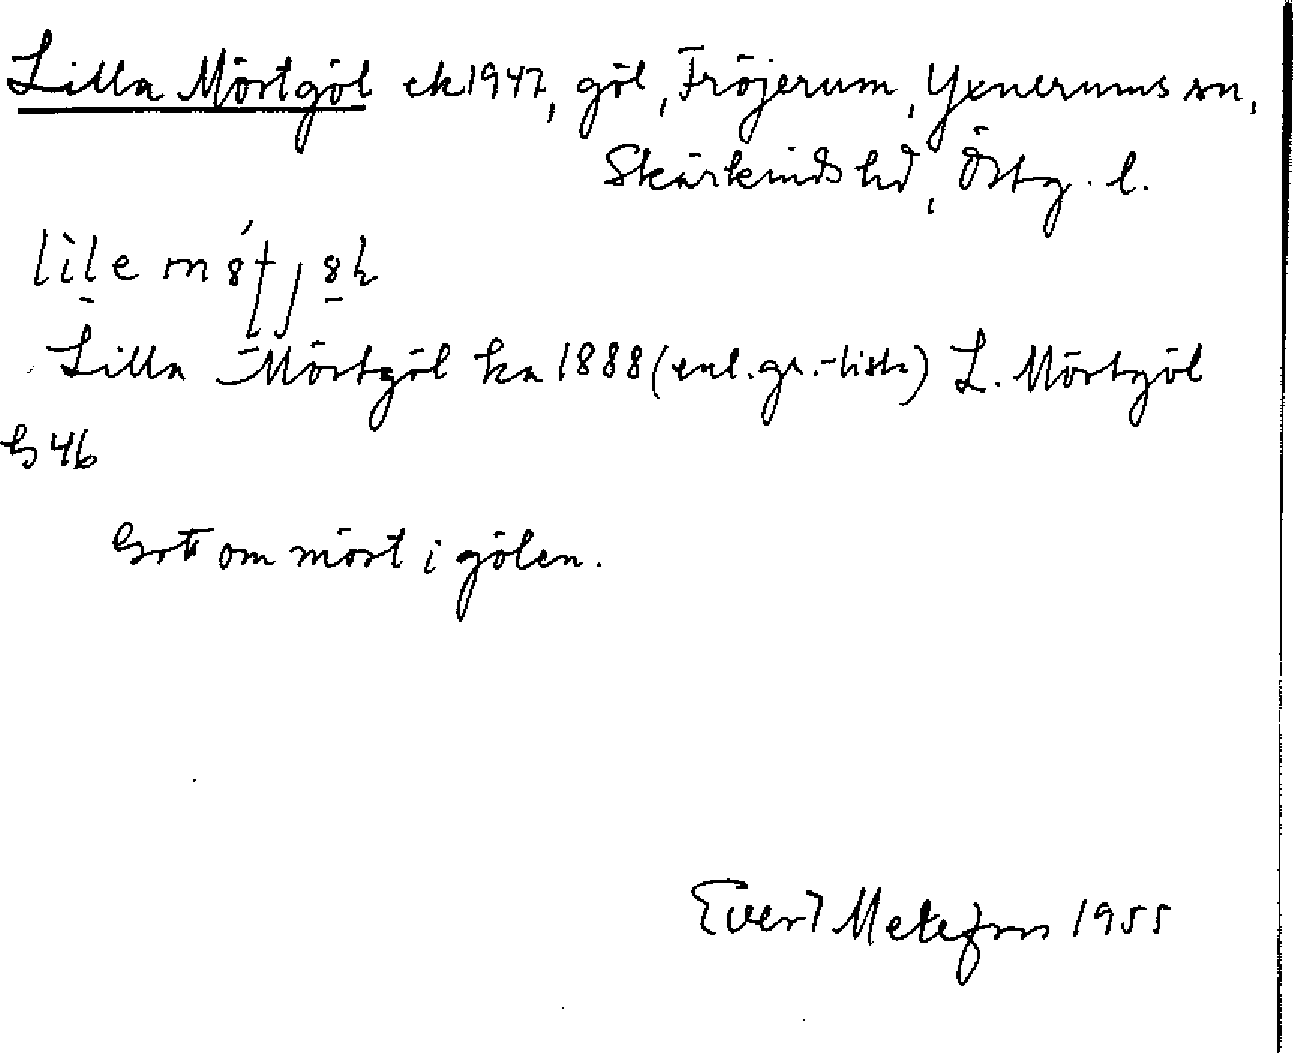 Lilla Mörtgöl ek 1947, göl, Fröjerum, Yxnerums sn,
Skärkinds hd, Östg. l.
Lilla Mörtgöl ka 1888 (enl. gr.-lista) L. Mörtgöl
h 46
Gott om mört i gölen.
Evert 1955